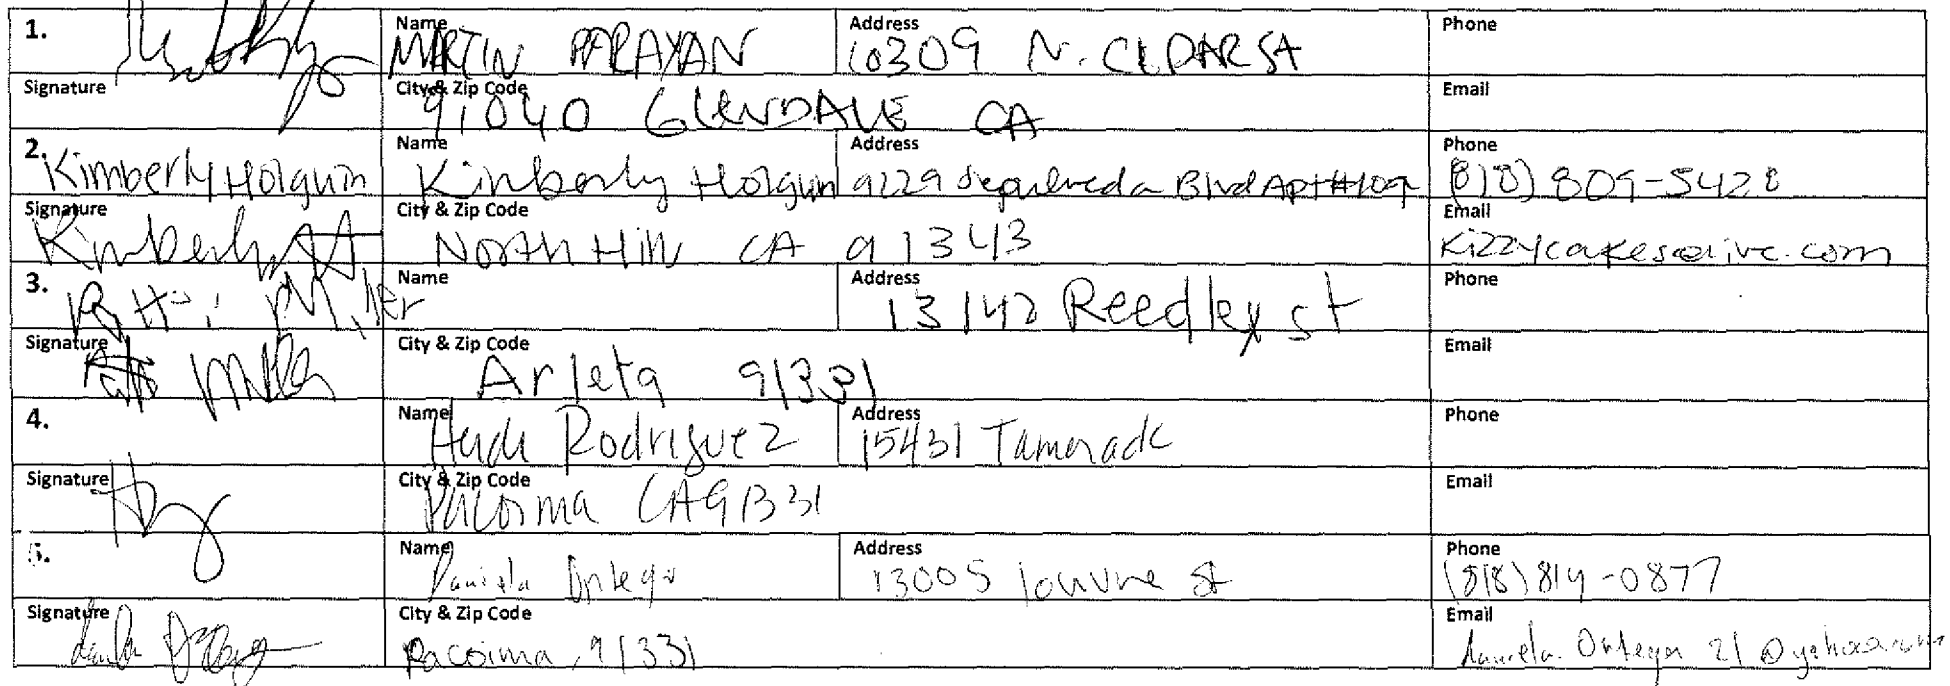 1. Name MARTIN PARAYAN Address 10309 N. CEDAR St Phone
Signature City & Zip Code 91040 GLENDALE CA Email
2. Kimberly Holguin Name Kimberly Holguin Address 9229 Sepulveda Blvd Apt #109 Phone (818) 809-5428
Signature Kimberly City & Zip Code North Hill CA 91343 Email kizzycakes@live.com
3. Miller Name Address 13142 Reedley st Phone
Signature City & Zip Code Arleta 91331 Email
4. Name Rodriguez Address 15431 Phone
Signature City & Zip Code Pacoima CA 91331 Email
5. Name Daniela Ortega Address 13005 louvre st Phone (818) 814-0877
Signature City & Zip Code Pacoima, 91331 Email